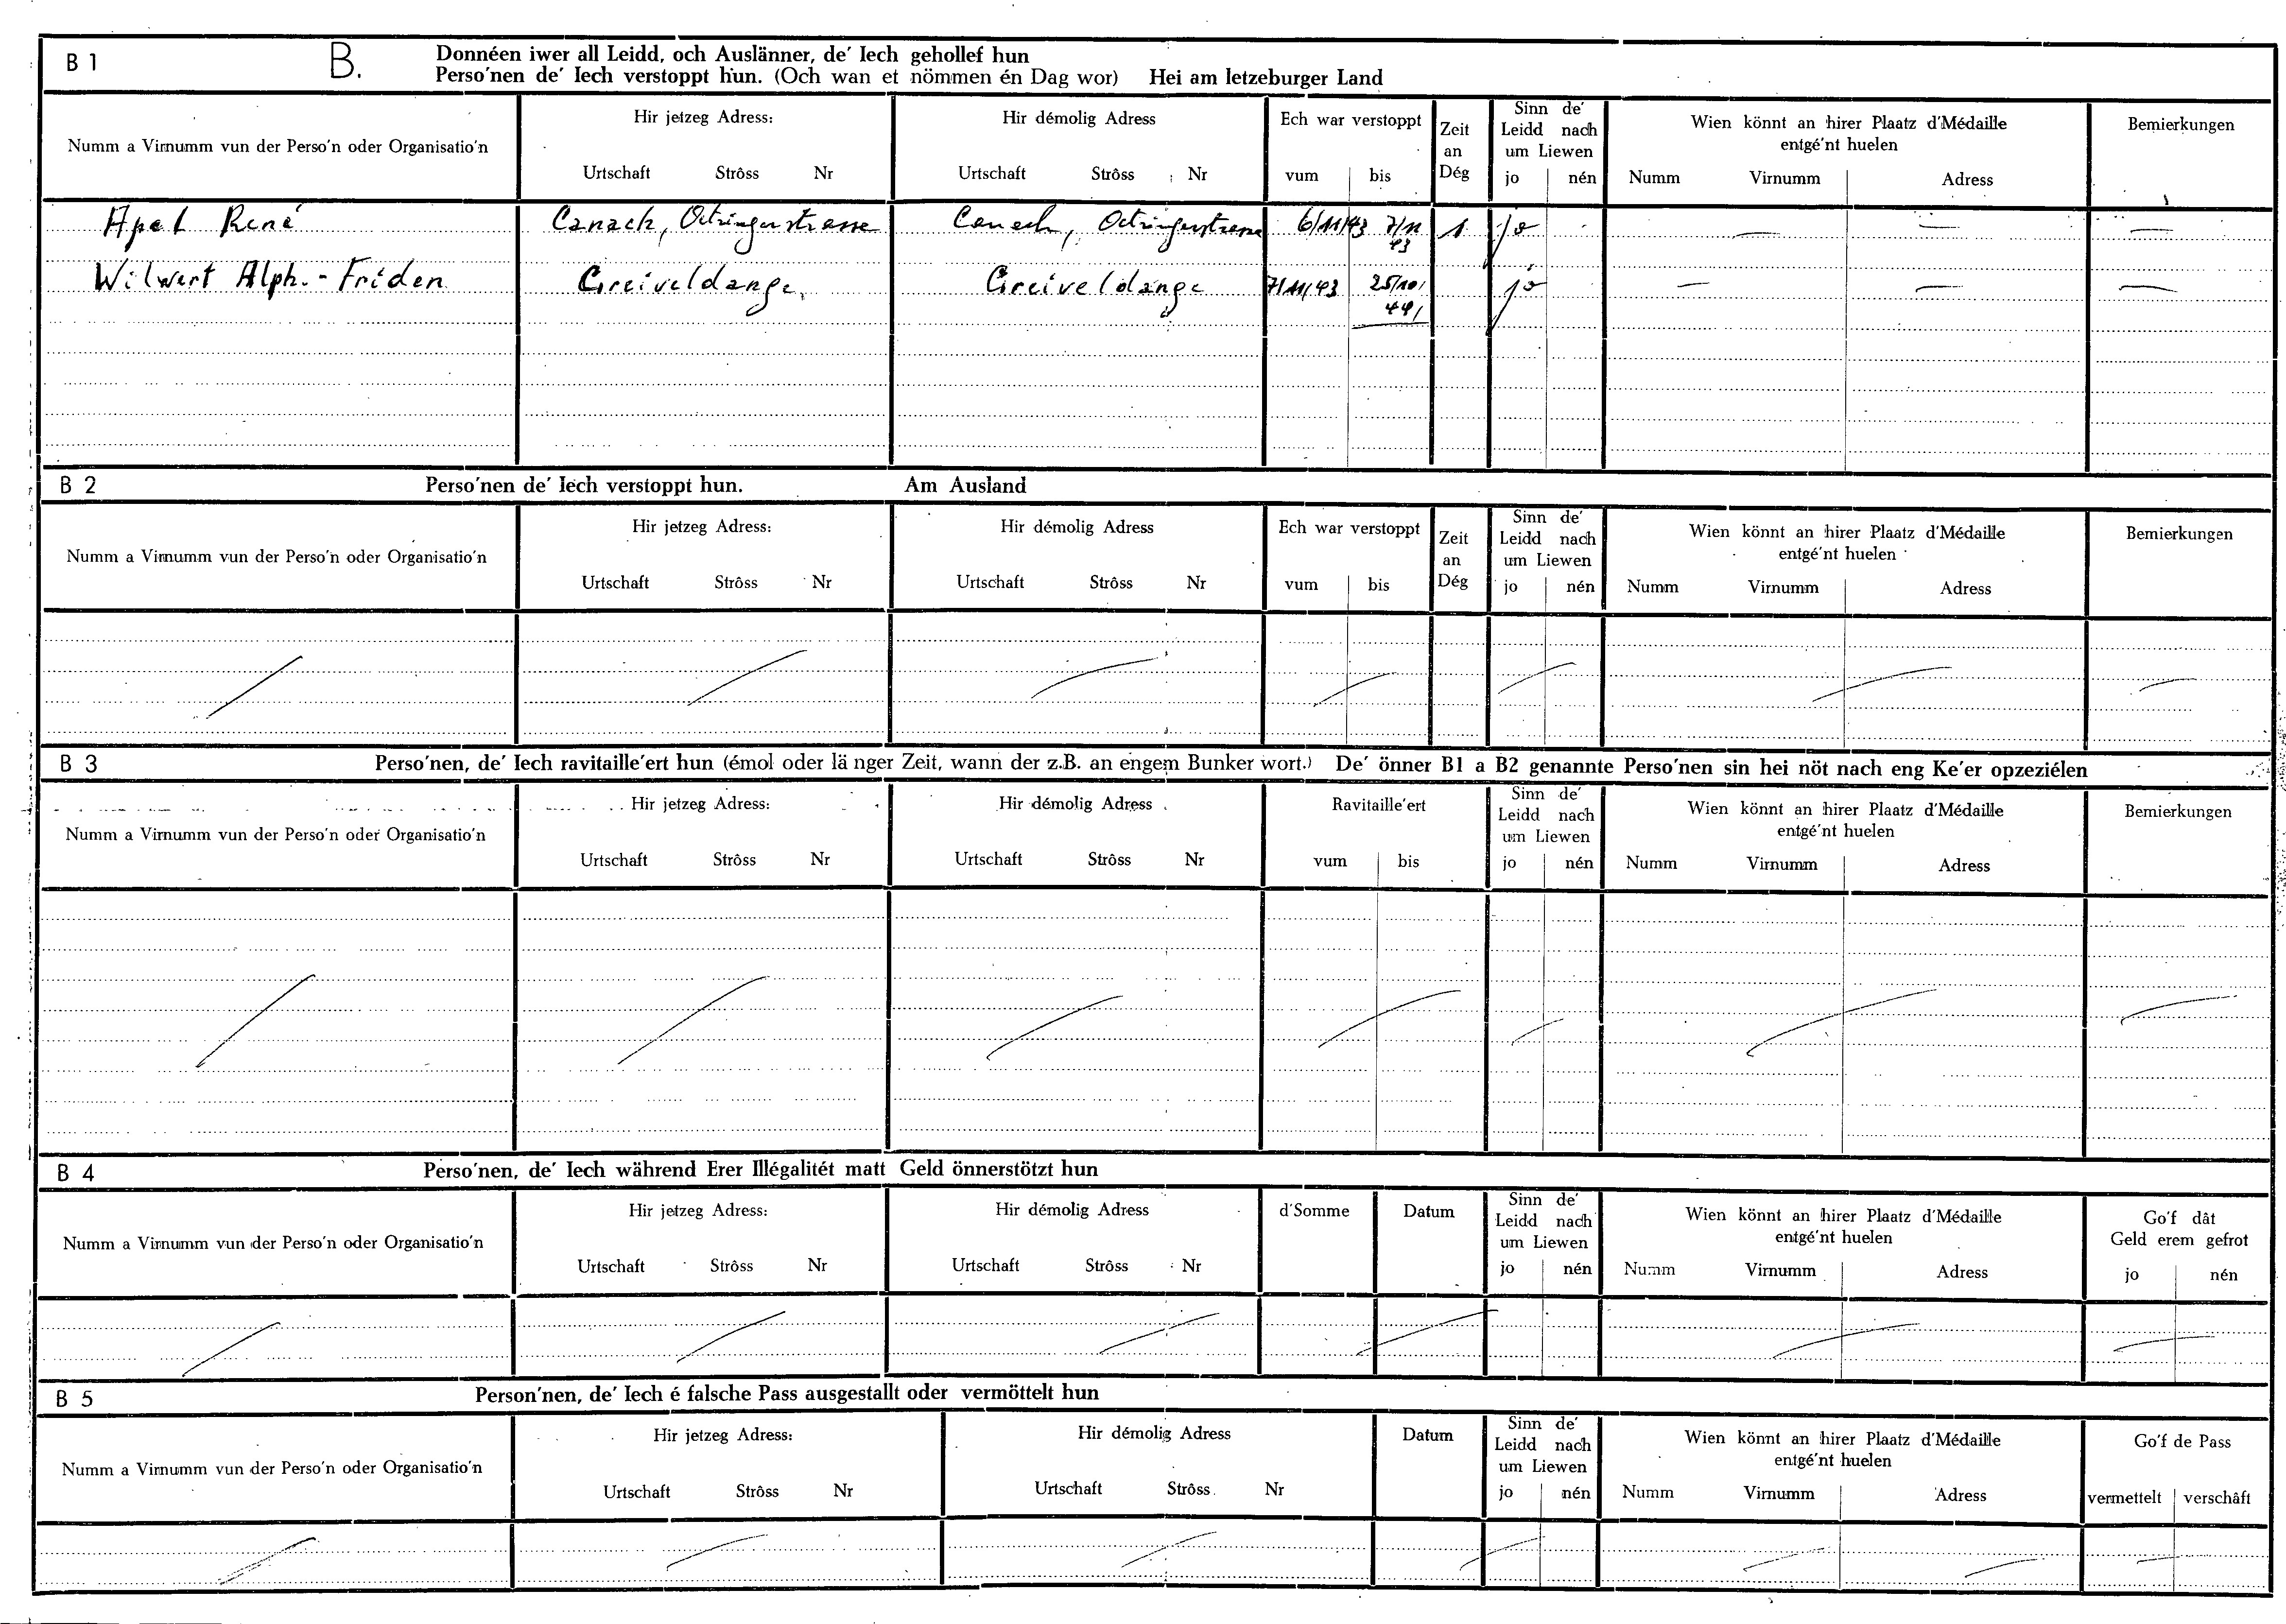 B 1 B. Donnéen iwer all Leidd, och Auslänner, de' Iech gehollef hun
Perso'nen de' Iech verstoppt hun. (Och wan et nömmen én Dag wor) Hei am letzeburger Land
Numm a Virnumm vun der Perso'n oder Organisatio'n
Hir jetzeg Adress:
Urtschaft Strôss Nr
Hir démolig Adress
Urtschaft Strôss Nr
Ech war verstoppt
vum bis
Zeit
an
Dég
Sinn de'
Leidd nach
um Liewen
jo nén
Wien könnt an hirer Plaatz d'Médaille
entgé'nt huelen
Numm Virnumm Adress
Bemierkungen
Apel René Canach, Oetringerstrasse Canach, Oetringerstrasse 6/11/43 7/11 43 1 jo — — —
Wilwert Alph. - Friden Greiveldange Greiveldange 7/11/43 25/10/ 44 jo — — —
B 2 Perso'nen de' Iech verstoppt hun. Am Ausland
Numm a Virnumm vun der Perso'n oder Organisatio'n
Hir jetzeg Adress:
Urtschaft Strôss Nr
Hir démolig Adress
Urtschaft Strôss Nr
Ech war verstoppt
vum bis
Zeit
an
Dég
Sinn de'
Leidd nach
um Liewen
jo nén
Wien könnt an hirer Plaatz d'Médaille
entgé'nt huelen
Numm Virnumm Adress
Bemierkungen
B 3 Perso'nen, de' Iech ravitaille'ert hun (émol oder länger Zeit, wann der z.B. an engem Bunker wort.) De' önner B1 a B2 genannte Perso'nen sin hei nöt nach eng Ke'er opzeziélen
Numm a Virnumm vun der Perso'n oder Organisatio'n
Hir jetzeg Adress:
Urtschaft Strôss Nr
Hir démolig Adress
Urtschaft Strôss Nr
Ravitaille'ert
vum bis
Sinn de'
Leidd nach
um Liewen
jo nén
Wien könnt an hirer Plaatz d'Médaille
entgé'nt huelen
Numm Virnumm Adress
Bemierkungen
B 4 Perso'nen, de' Iech während Erer Illégalitét matt Geld önnerstötzt hun
Numm a Virnumm vun der Perso'n oder Organisatio'n
Hir jetzeg Adress:
Urtschaft Strôss Nr
Hir démolig Adress
Urtschaft Strôss Nr
d'Somme
Datum
Sinn de'
Leidd nach
um Liewen
jo nén
Wien könnt an hirer Plaatz d'Médaille
entgé'nt huelen
Numm Virnumm Adress
Go'f dât
Geld erem gefrot
jo nén
B 5 Person'nen, de' Iech é falsche Pass ausgestallt oder vermöttelt hun
Numm a Virnumm vun der Perso'n oder Organisatio'n
Hir jetzeg Adress:
Urtschaft Strôss Nr
Hir démolig Adress
Urtschaft Strôss Nr
Datum
Sinn de'
Leidd nach
um Liewen
jo nén
Wien könnt an hirer Plaatz d'Médaille
entgé'nt huelen
Numm Virnumm Adress
Go'f de Pass
vermettelt verschâft